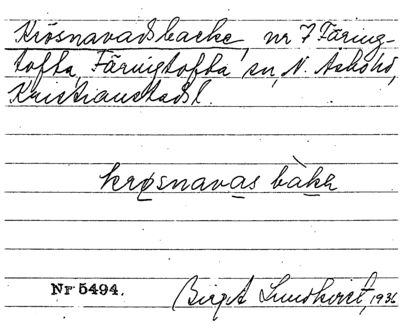 Krösnavadsbacke, nr 7 Färing-
tofta, Färingtofta sn, N. Åsbo hd,
Kristianstads l.
krøsnavas bàka
Nr 5494.
Birgit Lundkvist, 1936